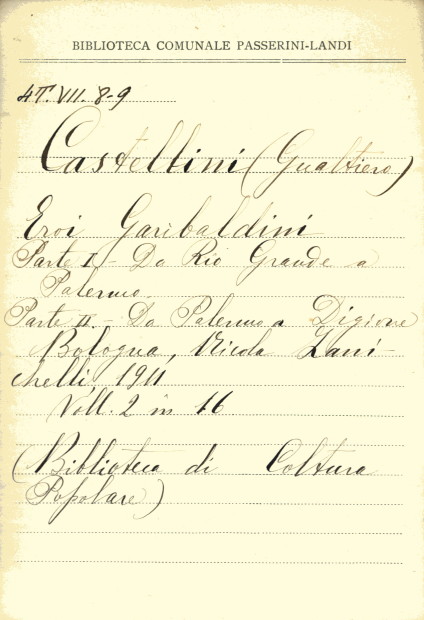 BIBLIOTECA COMUNALE PASSERINI-LANDI
4T. VII. 8-9
Castellini (Gualtiero)
Eroi Garibaldini
Parte I. - Da Rio Grande a
Palermo
Parte II. - Da Palermo a Digione
Bologna, Nicola Zani-
chelli, 1911
Voll. 2 in 16
(Biblioteca di Coltura
Popolare)